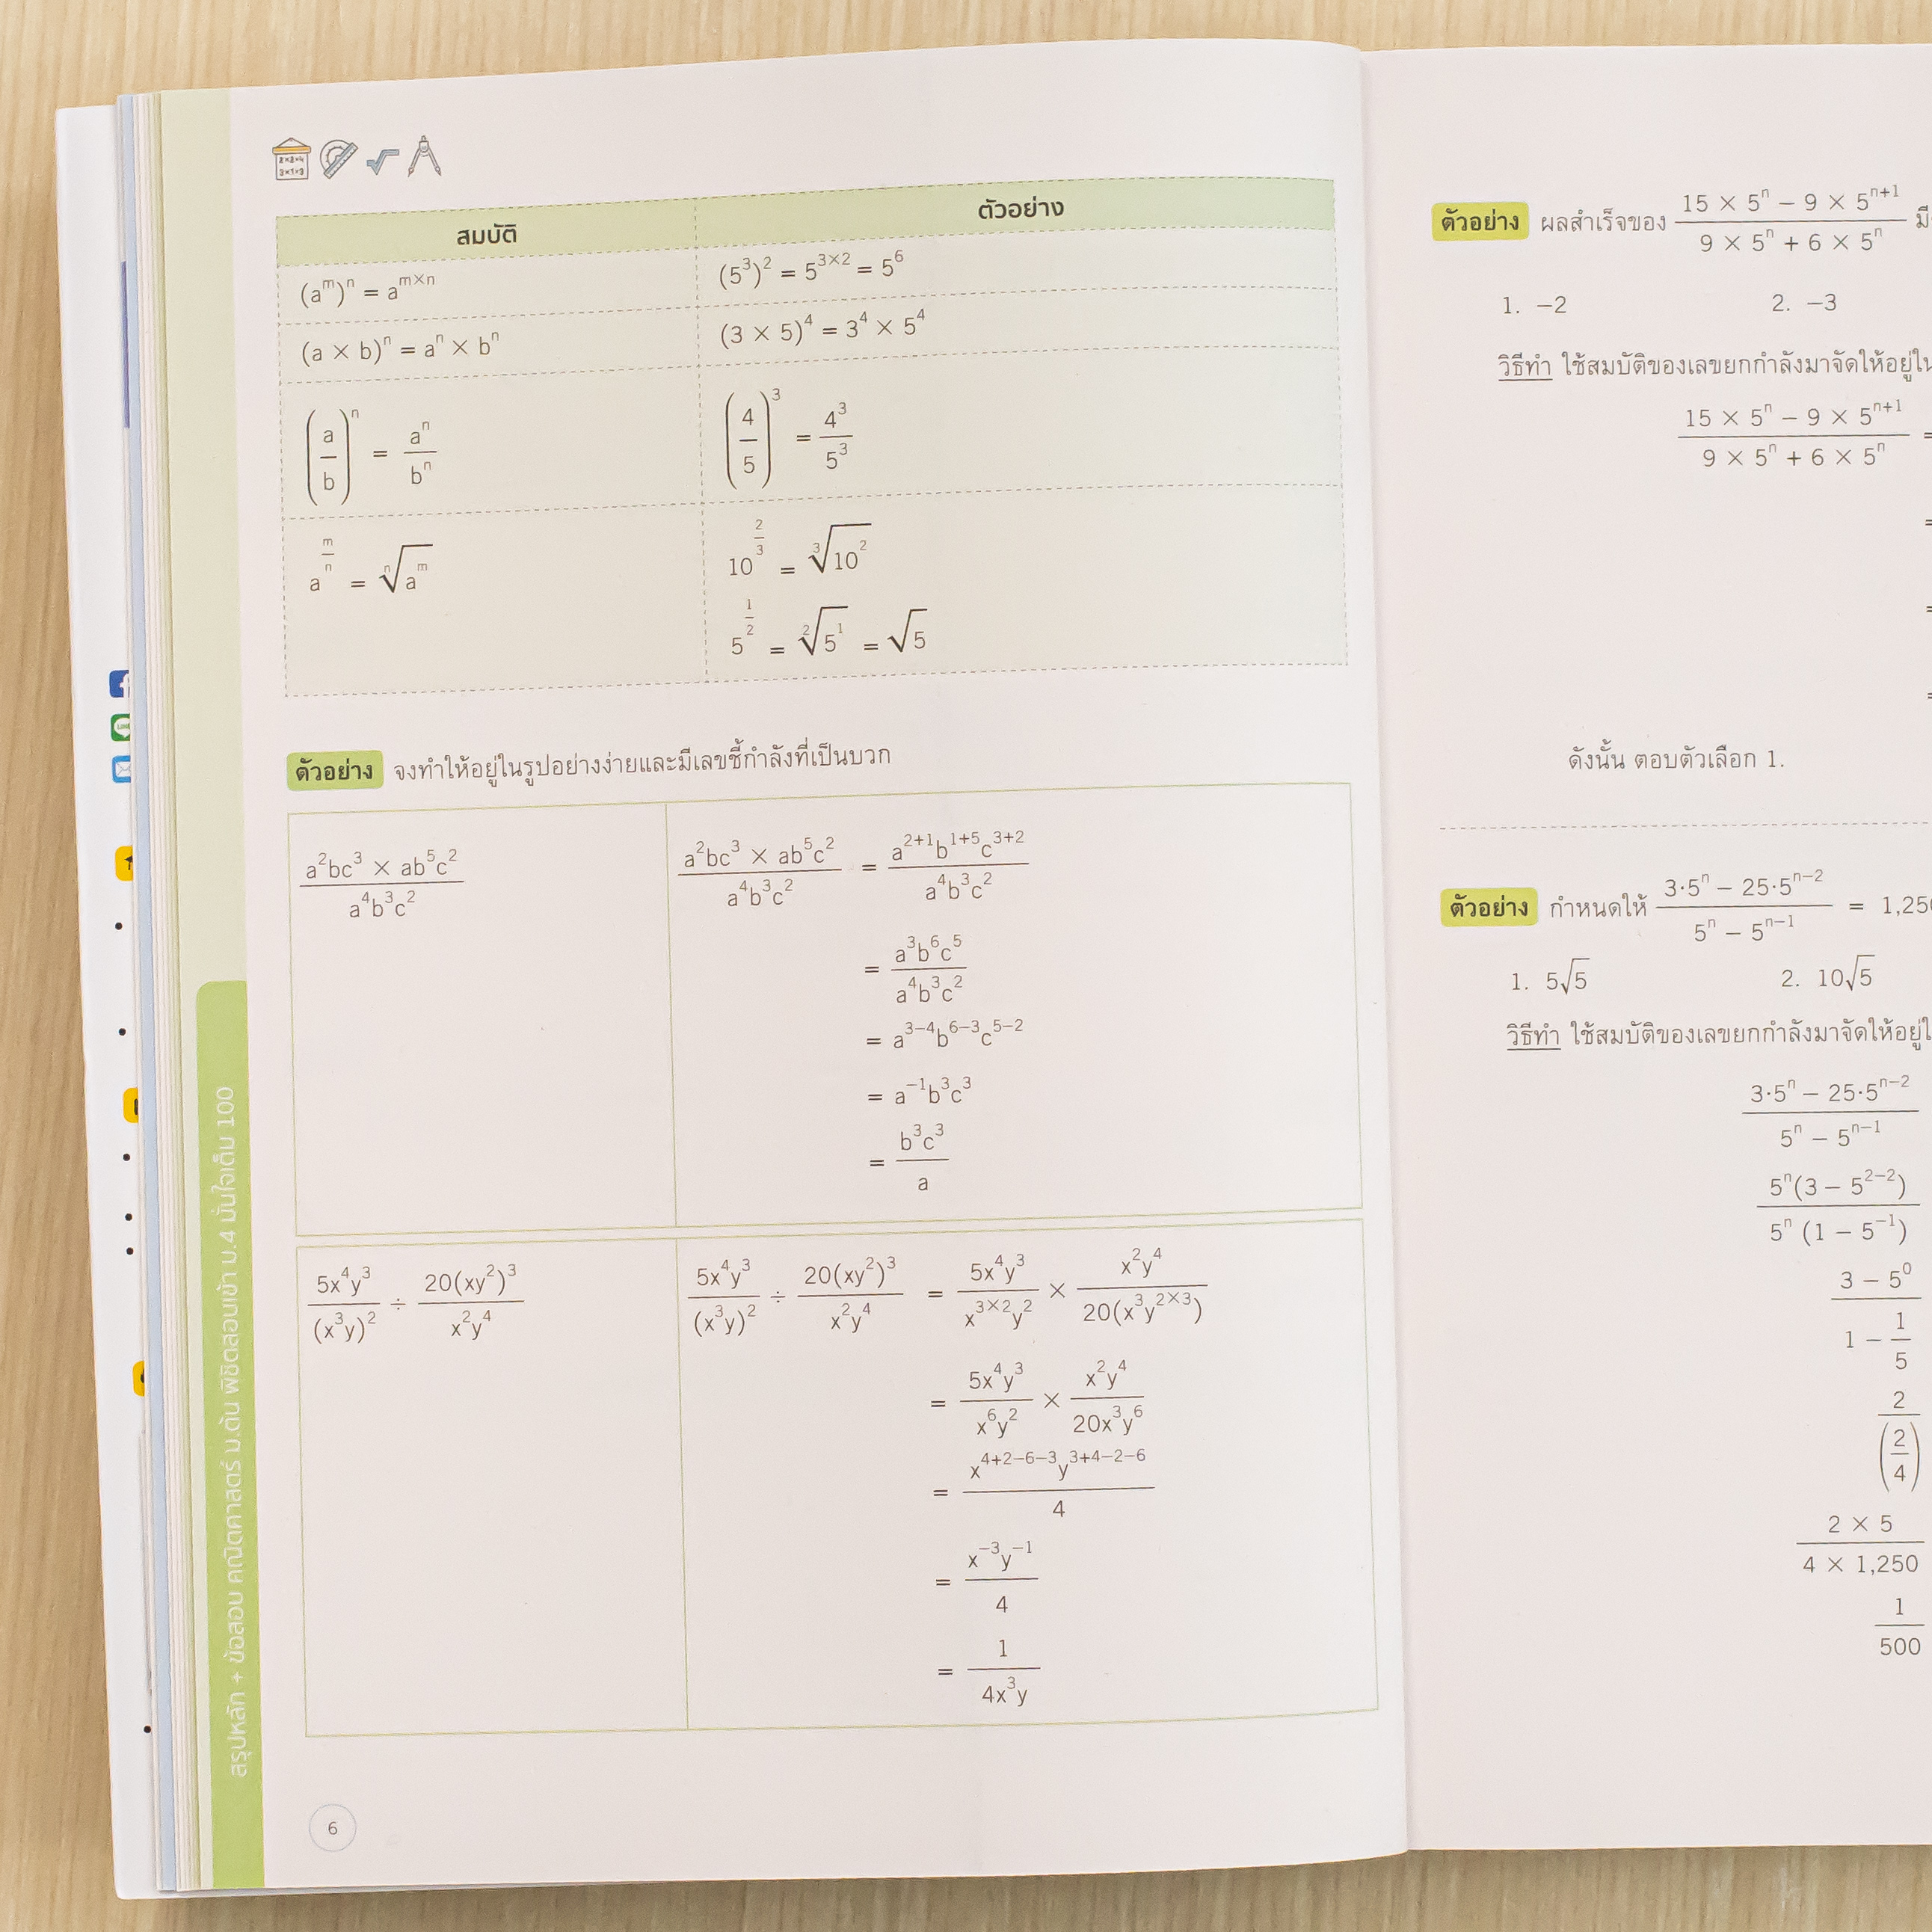 สมบัติ ตัวอย่าง
(a^m)^n = a^{m×n} (5^3)^2 = 5^{3×2} = 5^6
(a × b)^n = a^n × b^n (3 × 5)^4 = 3^4 × 5^4
(a/b)^n = a^n/b^n (4/5)^3 = 4^3/5^3
a^{m/n} = ⁿ√a^m 10^{2/3} = ³√10^2
5^{1/2} = ²√5^1 = √5
ตัวอย่าง จงทำให้อยู่ในรูปอย่างง่ายและมีเลขชี้กำลังที่เป็นบวก
a^2bc^3 × ab^5c^2 / a^4b^3c^2 a^2bc^3 × ab^5c^2 / a^4b^3c^2 = a^{2+1}b^{1+5}c^{3+2} / a^4b^3c^2
= a^3b^6c^5 / a^4b^3c^2
= a^{3−4}b^{6−3}c^{5−2}
= a^{−1}b^3c^3
= b^3c^3 / a
5x^4y^3 / (x^3y)^2 ÷ 20(xy^2)^3 / x^2y^4 5x^4y^3 / (x^3y)^2 ÷ 20(xy^2)^3 / x^2y^4 = 5x^4y^3 / x^{3×2}y^2 × x^2y^4 / 20(x^3y^{2×3})
= 5x^4y^3 / x^6y^2 × x^2y^4 / 20x^3y^6
= x^{4+2−6−3}y^{3+4−2−6} / 4
= x^{−3}y^{−1} / 4
= 1 / 4x^3y
6
สรุปหลัก + ข้อสอบ คณิตศาสตร์ ม.ต้น พิชิตสอบเข้า ม.4 มั่นใจเต็ม 100
ตัวอย่าง ผลสำเร็จของ 15 × 5^n − 9 × 5^{n+1} / 9 × 5^n + 6 × 5^n
1. −2 2. −3
วิธีทำ ใช้สมบัติของเลขยกกำลังมาจัดให้อยู่ใน
15 × 5^n − 9 × 5^{n+1} / 9 × 5^n + 6 × 5^n =
=
=
=
ดังนั้น ตอบตัวเลือก 1.
ตัวอย่าง กำหนดให้ 3·5^n − 25·5^{n−2} / 5^n − 5^{n−1} = 1,250
1. 5√5 2. 10√5
วิธีทำ ใช้สมบัติของเลขยกกำลังมาจัดให้อยู่
3·5^n − 25·5^{n−2} / 5^n − 5^{n−1}
5^n(3 − 5^{2−2}) / 5^n (1 − 5^{−1})
3 − 5^0 / 1 − 1/5
2 / (2/4)
2 × 5 / 4 × 1,250
1 / 500